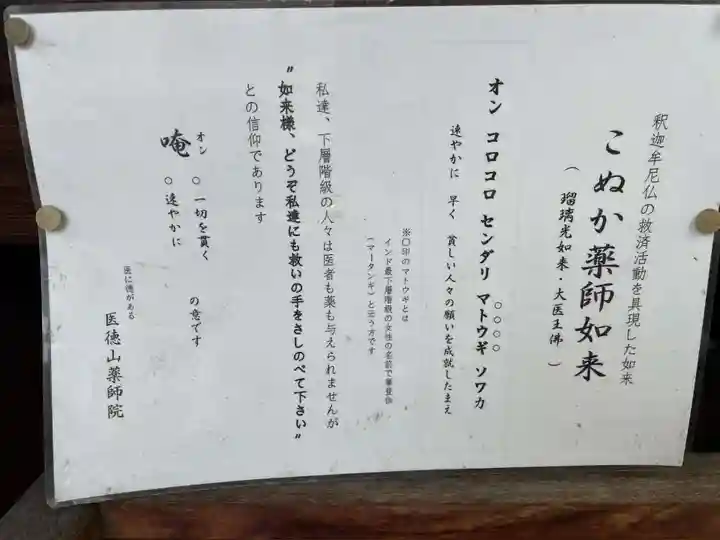 釈迦牟尼仏の救済活動を具現した如来
こぬか薬師如来
(瑠璃光如来・大医王佛)
オン コロコロ センダリ マトウギ ソワカ
○○○○
速やかに 早く 貧しい人々の願いを成就したまえ
※〇印のマトウギとは
インド最下層階級の女性の名前で摩登伽
(マータンギ)と云う方です
私達、下層階級の人々は医者も薬も与えられませんが
"如来様、どうぞ私達にも救いの手をさしのべて下さい"
との信仰であります
オン
唵 ○一切を貫く
○速やかに
の意です
医に徳がある
医徳山薬師院